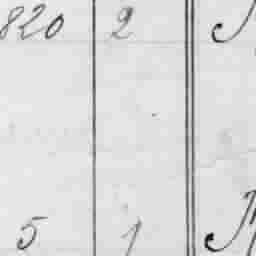 820 2
5 1